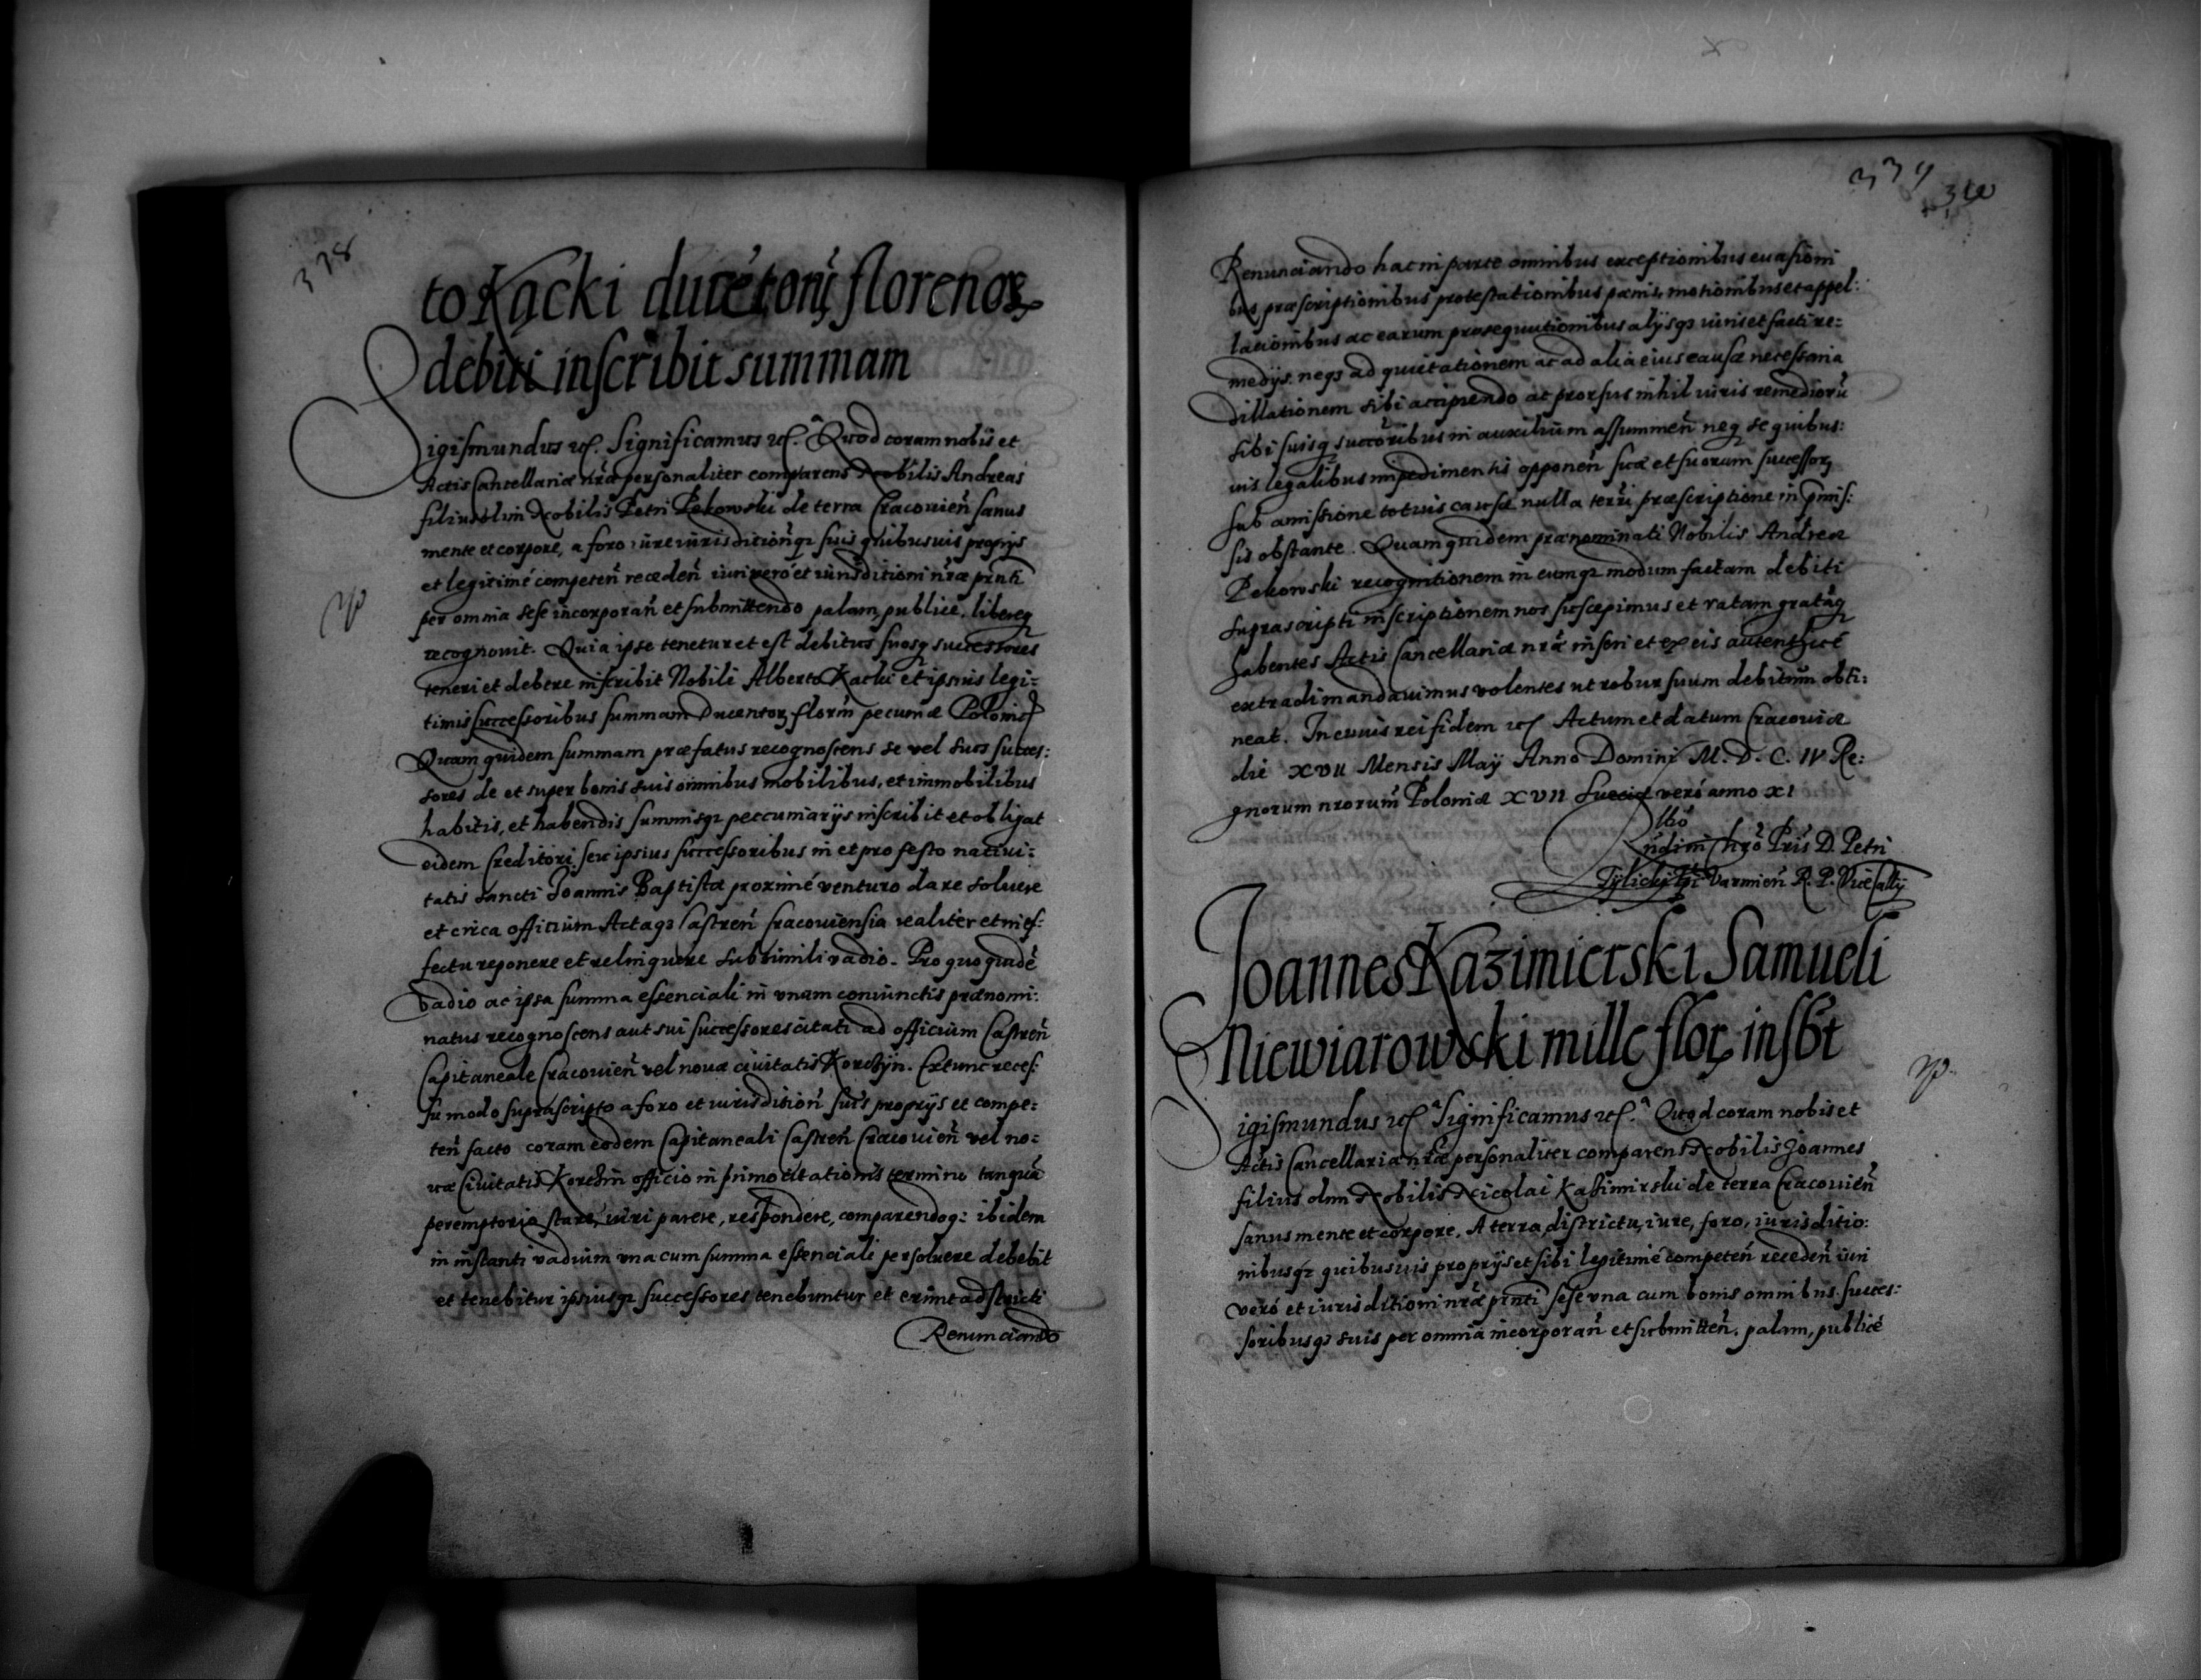 338
to Kącki ducẽtorũ florenorꝫ
debiti inscribit summam
Sigismundus etc. Significamus etc. Quod coram nobis et
Actis Cancellariæ nr̃æ personaliter comparens Nobilis Andreas
filius olim Nobilis Petri Pekowski de terra Cracouieñ sanus
mente et corpore, a foro iure iurisditioñqꝫ suis quibusuis proprijs
et legitimé competeñ recedeñ iuri veró et iurisditioni nr̃æ prñti
per omnia sese incorporañ et submittendo palam, publicé, libereqꝫ
recognouit. Quia ipse tenetur et est debitus suosqꝫ successores
teneri et debere inscribit Nobili Alberto Kącki et ipsius legi:
timis successoribus summam Ducentorꝫ floreñ pecuniæ Polonic.
Quam quidem summam præfatus recognoscens se vel suos succes:
sores de et super bonis suis omnibus mobilibus, et immobilibus
habitis, et habendis summisqꝫ peccuniarijs inscribit et obligat
eidem Creditori seu ipsius successoribus in et pro festo natiui:
tatis sancti Joannis Baptistæ proximé venturo dare soluere
et circa officium Actaqꝫ Castreñ Cracouiensia realiter et in ef:
fectu reponere et relinquere sub simili vadio. Pro quo quidẽ
vadio ac ipsa summa essenciali in vnum coniunctis prænomi:
natus recognoscens aut sui successores citati ad officium Castreñ
Capitaneale Cracouieñ vel nouæ ciuitatis Korczyn. Extunc reces:
su modo suprascripto a foro et iurisditioñ suis proprijs et compe:
teñ facto coram eodem Capitaneali Castreñ Cracouieñ vel no:
uæ Ciuitatis Korczin officio in primo citationis termino tanquã
peremptorio stare, iuri parere, respondere, comparendoqꝫ ibidem
in instanti vadium vna cum summa essenciali persoluere debebit
et tenebitur ipsiusqꝫ successores tenebuntur et erunt adstricti
Renunciando
339
340
Renunciando hac in parte omnibus exceptionibus euasioni
bus præscriptionibus protestationibus pænis, motionibus et appel:
lacionibus ac earum prosequutionibus alijsqꝫ iuris et facti re:
medijs. neqꝫ ad quietationem ac ad alia eius causæ necessaria
dillationem sibi accipiendo ac prorsus nihil iuris remediorũ
sibi suisqꝫ succoribus in auxilium assummeñ neqꝫ se quibus:
uis legalibus impedimentis opponeñ suæ et suorum successorꝫ
sub amissione totius causæ nulla terrī præscriptione in p̃mis:
sis obstante. Quam quidem prænominati Nobilis Andreæ
Pekowski recognitionem in eumqꝫ modum factam debiti
suprascripti inscriptionem nos suscepimus et ratam gratãqꝫ
habentes Actis Cancellariæ nr̃æ inseri et ex eis autenthicé
extradi mandauimus volentes ut robur suum debitum obti:
neat. In cuius rei fidem etc. Actum et datum Cracouiæ
die XVII Mensis Maÿ Anno Domini M. D. C. IV Re:
gnorum nrorum Poloniæ XVII Sueciæ veró anno XI
Rñdi in Chrõ Pris D. Petri
Tylicky Epi Varmieñ R. P. Vicecallij
Joannes Kazimierski Samueli
Niewiarowski mille florꝫ insbt
Sigismundus etc. Significamus etc. Quod coram nobis et
Actis Cancellariæ nr̃æ personaliter comparens Nobilis Joannes
filius olim Nobilis Nicolai Kasimirski de terra Cracouieñ
sanus mente et corpore. A terra, districtu, iure, foro, iurisditio:
nibusqꝫ quibusuis proprijs et sibi legitimé competeñ recedeñ iuri
veró et iurisditioni nr̃æ prñti sese vna cum bonis omnibus succes:
soribusqꝫ suis per omnia incorporañ et submitteñ. palam, publicé